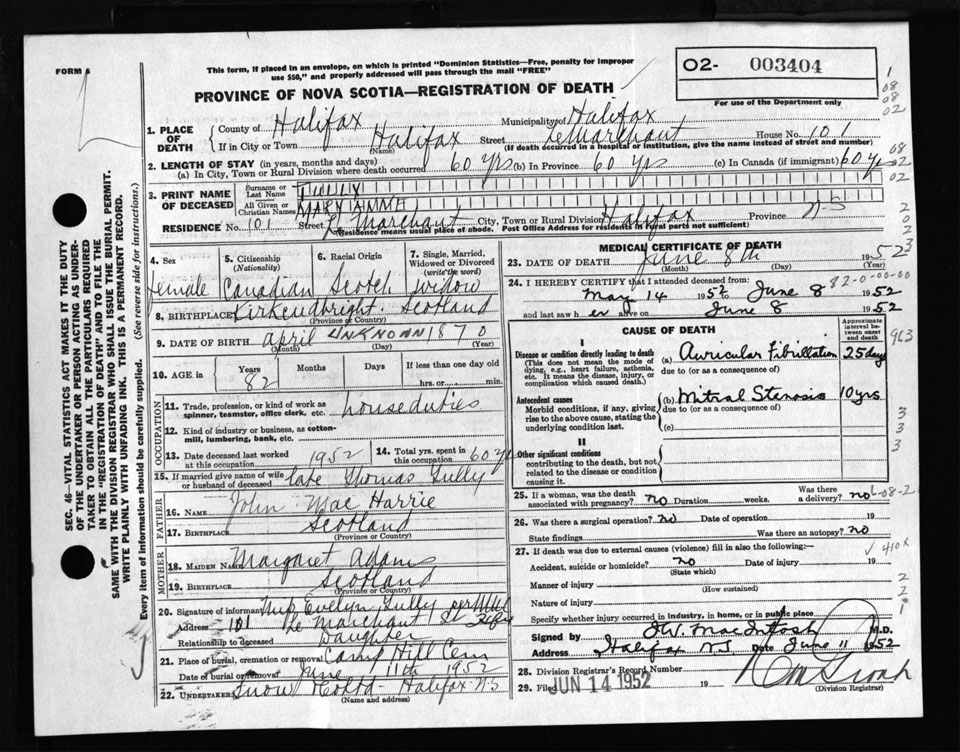 FORM 6
This form, if placed in an envelope, on which is printed "Dominion Statistics—Free, penalty for improper
use $50," and properly addressed will pass through the mail "FREE"
O2- 003404
For use of the Department only
PROVINCE OF NOVA SCOTIA—REGISTRATION OF DEATH
1. PLACE OF DEATH
County of Halifax Municipality of Halifax
If in City or Town Halifax Street LeMarchant House No. 101
(Name) (If death occurred in a hospital or institution, give the name instead of street and number)
2. LENGTH OF STAY (in years, months and days)
(a) In City, Town or Rural Division where death occurred 60 yrs (b) In Province 60 yrs (c) In Canada (if immigrant) 60 yrs
3. PRINT NAME OF DECEASED
Surname or Last Name TULLY
All Given or Christian Names MARY
RESIDENCE No. 101 Street Le Marchant City, Town or Rural Division Halifax Province N-S
(Residence means usual place of abode. Post Office Address for residents in rural parts not sufficient)
4. Sex
female
5. Citizenship
(Nationality)
Canadian
6. Racial Origin
Scotch
7. Single, Married,
Widowed or Divorced
(write the word)
widow
8. BIRTHPLACE Kirkcudbright. Scotland
(Province or Country)
9. DATE OF BIRTH April UNKNOWN 1870
(Month) (Day) (Year)
10. AGE in
Years Months Days If less than one day
82 hrs. or min.
OCCUPATION
11. Trade, profession, or kind of work as
spinner, teamster, office clerk, etc. house duties
12. Kind of industry or business, as cotton-
mill, lumbering, bank, etc.
13. Date deceased last worked
at this occupation 1952
14. Total yrs. spent in
this occupation 60 yrs
15. If married give name of wife
or husband of deceased late Thomas Tully
FATHER
16. NAME John Mac Harrie
17. BIRTHPLACE Scotland
(Province or Country)
MOTHER
18. MAIDEN NAME Margaret Adams
19. BIRTHPLACE Scotland
(Province or Country)
20. Signature of informant Evelyn Tully per
Address 101 Le Marchant St
Relationship to deceased Daughter
21. Place of burial, cremation or removal Camp Hill Cem
Date of burial or removal June 11th 1952
22. UNDERTAKER Snow Co Ltd - Halifax N-S
(Name and address)
MEDICAL CERTIFICATE OF DEATH
23. DATE OF DEATH June 8th 1952
(Month) (Day) (Year)
24. I HEREBY CERTIFY that I attended deceased from:
May 14 1952 to June 8 1952
and last saw her alive on June 8 1952
82-0-00-00
CAUSE OF DEATH
Approximate
interval between
onset and
death
I
Disease or condition directly leading to death
(This does not mean the mode of
dying, e.g., heart failure, asthenia,
etc. It means the disease, injury, or
complication which caused death.)
(a) Auricular Fibrillation 25 days
due to (or as a consequence of)
Antecedent causes
Morbid conditions, if any, giving
rise to the above cause, stating the
underlying condition last.
(b) Mitral Stenosis 10 yrs
due to (or as a consequence of)
(c)
II
Other significant conditions
contributing to the death, but not
related to the disease or condition
causing it.
25. If a woman, was the death
associated with pregnancy? no Duration weeks.
Was there
a delivery? no
26. Was there a surgical operation? no Date of operation 19
State findings Was there an autopsy? no
27. If death was due to external causes (violence) fill in also the following:—
Accident, suicide or homicide? no Date of injury 19
(State which)
Manner of injury
(How sustained)
Nature of injury
Specify whether injury occurred in industry, in home, or in public place
Signed by MacIntosh M.D.
Address Halifax N.S Date June 11 1952
28. Division Registrar's Record Number
29. Filed JUN 14 1952 19
(Division Registrar)
SEC. 46—VITAL STATISTICS ACT MAKES IT THE DUTY
OF THE UNDERTAKER OR PERSON ACTING AS UNDER-
TAKER TO OBTAIN ALL THE PARTICULARS REQUIRED
IN THE "REGISTRATION OF DEATH" AND TO FILE THE
SAME WITH THE DIVISION REGISTRAR WHO SHALL ISSUE THE BURIAL PERMIT.
WRITE PLAINLY WITH UNFADING INK. THIS IS A PERMANENT RECORD.
Every item of information should be carefully supplied. (See reverse side for instructions.)